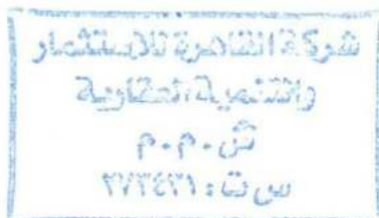 شركة القاهرة للاستثمار
والتنمية العقارية
ش.م.م
س ت: ٢٧٣٤٢١